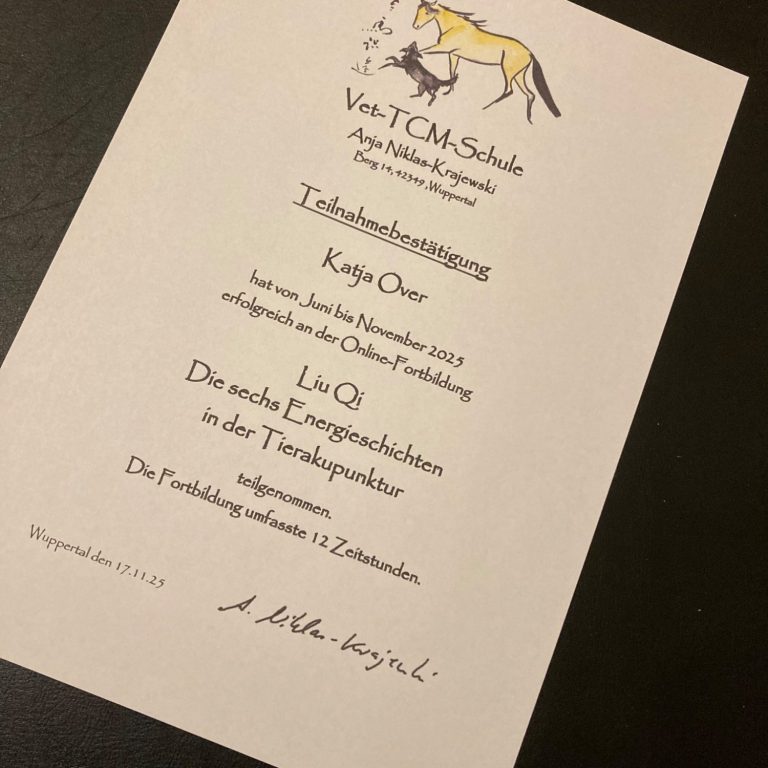 Vet-TCM-Schule
Anja Niklas-Krajewski
Berg 14, 42349 ,Wuppertal
Teilnahmebestätigung
Katja Over
hat von Juni bis November 2025
erfolgreich an der Online-Fortbildung
Liu Qi
Die sechs Energieschichten
in der Tierakupunktur
teilgenommen.
Die Fortbildung umfasste 12 Zeitstunden.
Wuppertal den 17.11.25
A. Niklas-Krajewski